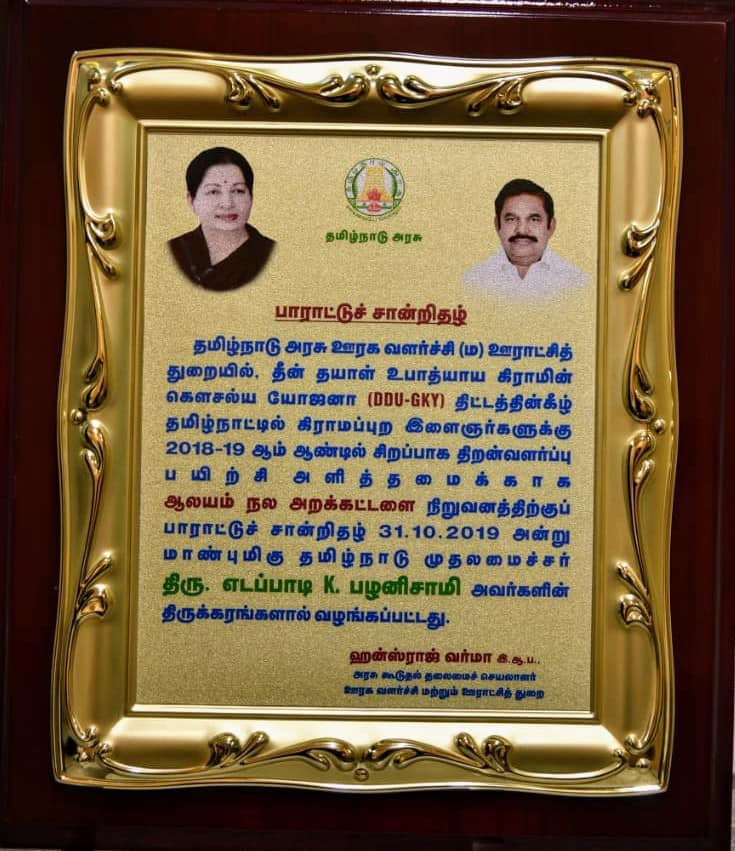 தமிழ்நாடு அரசு
பாராட்டுச் சான்றிதழ்
தமிழ்நாடு அரசு ஊரக வளர்ச்சி (ம) ஊராட்சித்
துறையில், தீன் தயாள் உபாத்யாய கிராமின்
கௌசல்ய யோஜனா (DDU-GKY) திட்டத்தின்கீழ்
தமிழ்நாட்டில் கிராமப்புற இளைஞர்களுக்கு
2018-19 ஆம் ஆண்டில் சிறப்பாக திறன்வளர்ப்பு
பயிற்சி அளித்தமைக்காக
ஆலயம் நல அறக்கட்டளை நிறுவனத்திற்குப்
பாராட்டுச் சான்றிதழ் 31.10.2019 அன்று
மாண்புமிகு தமிழ்நாடு முதலமைச்சர்
திரு. எடப்பாடி K. பழனிசாமி அவர்களின்
திருக்கரங்களால் வழங்கப்பட்டது.
ஹன்ஸ்ராஜ் வர்மா இ.ஆ.ப.,
அரசு கூடுதல் தலைமைச் செயலாளர்
ஊரக வளர்ச்சி மற்றும் ஊராட்சித் துறை